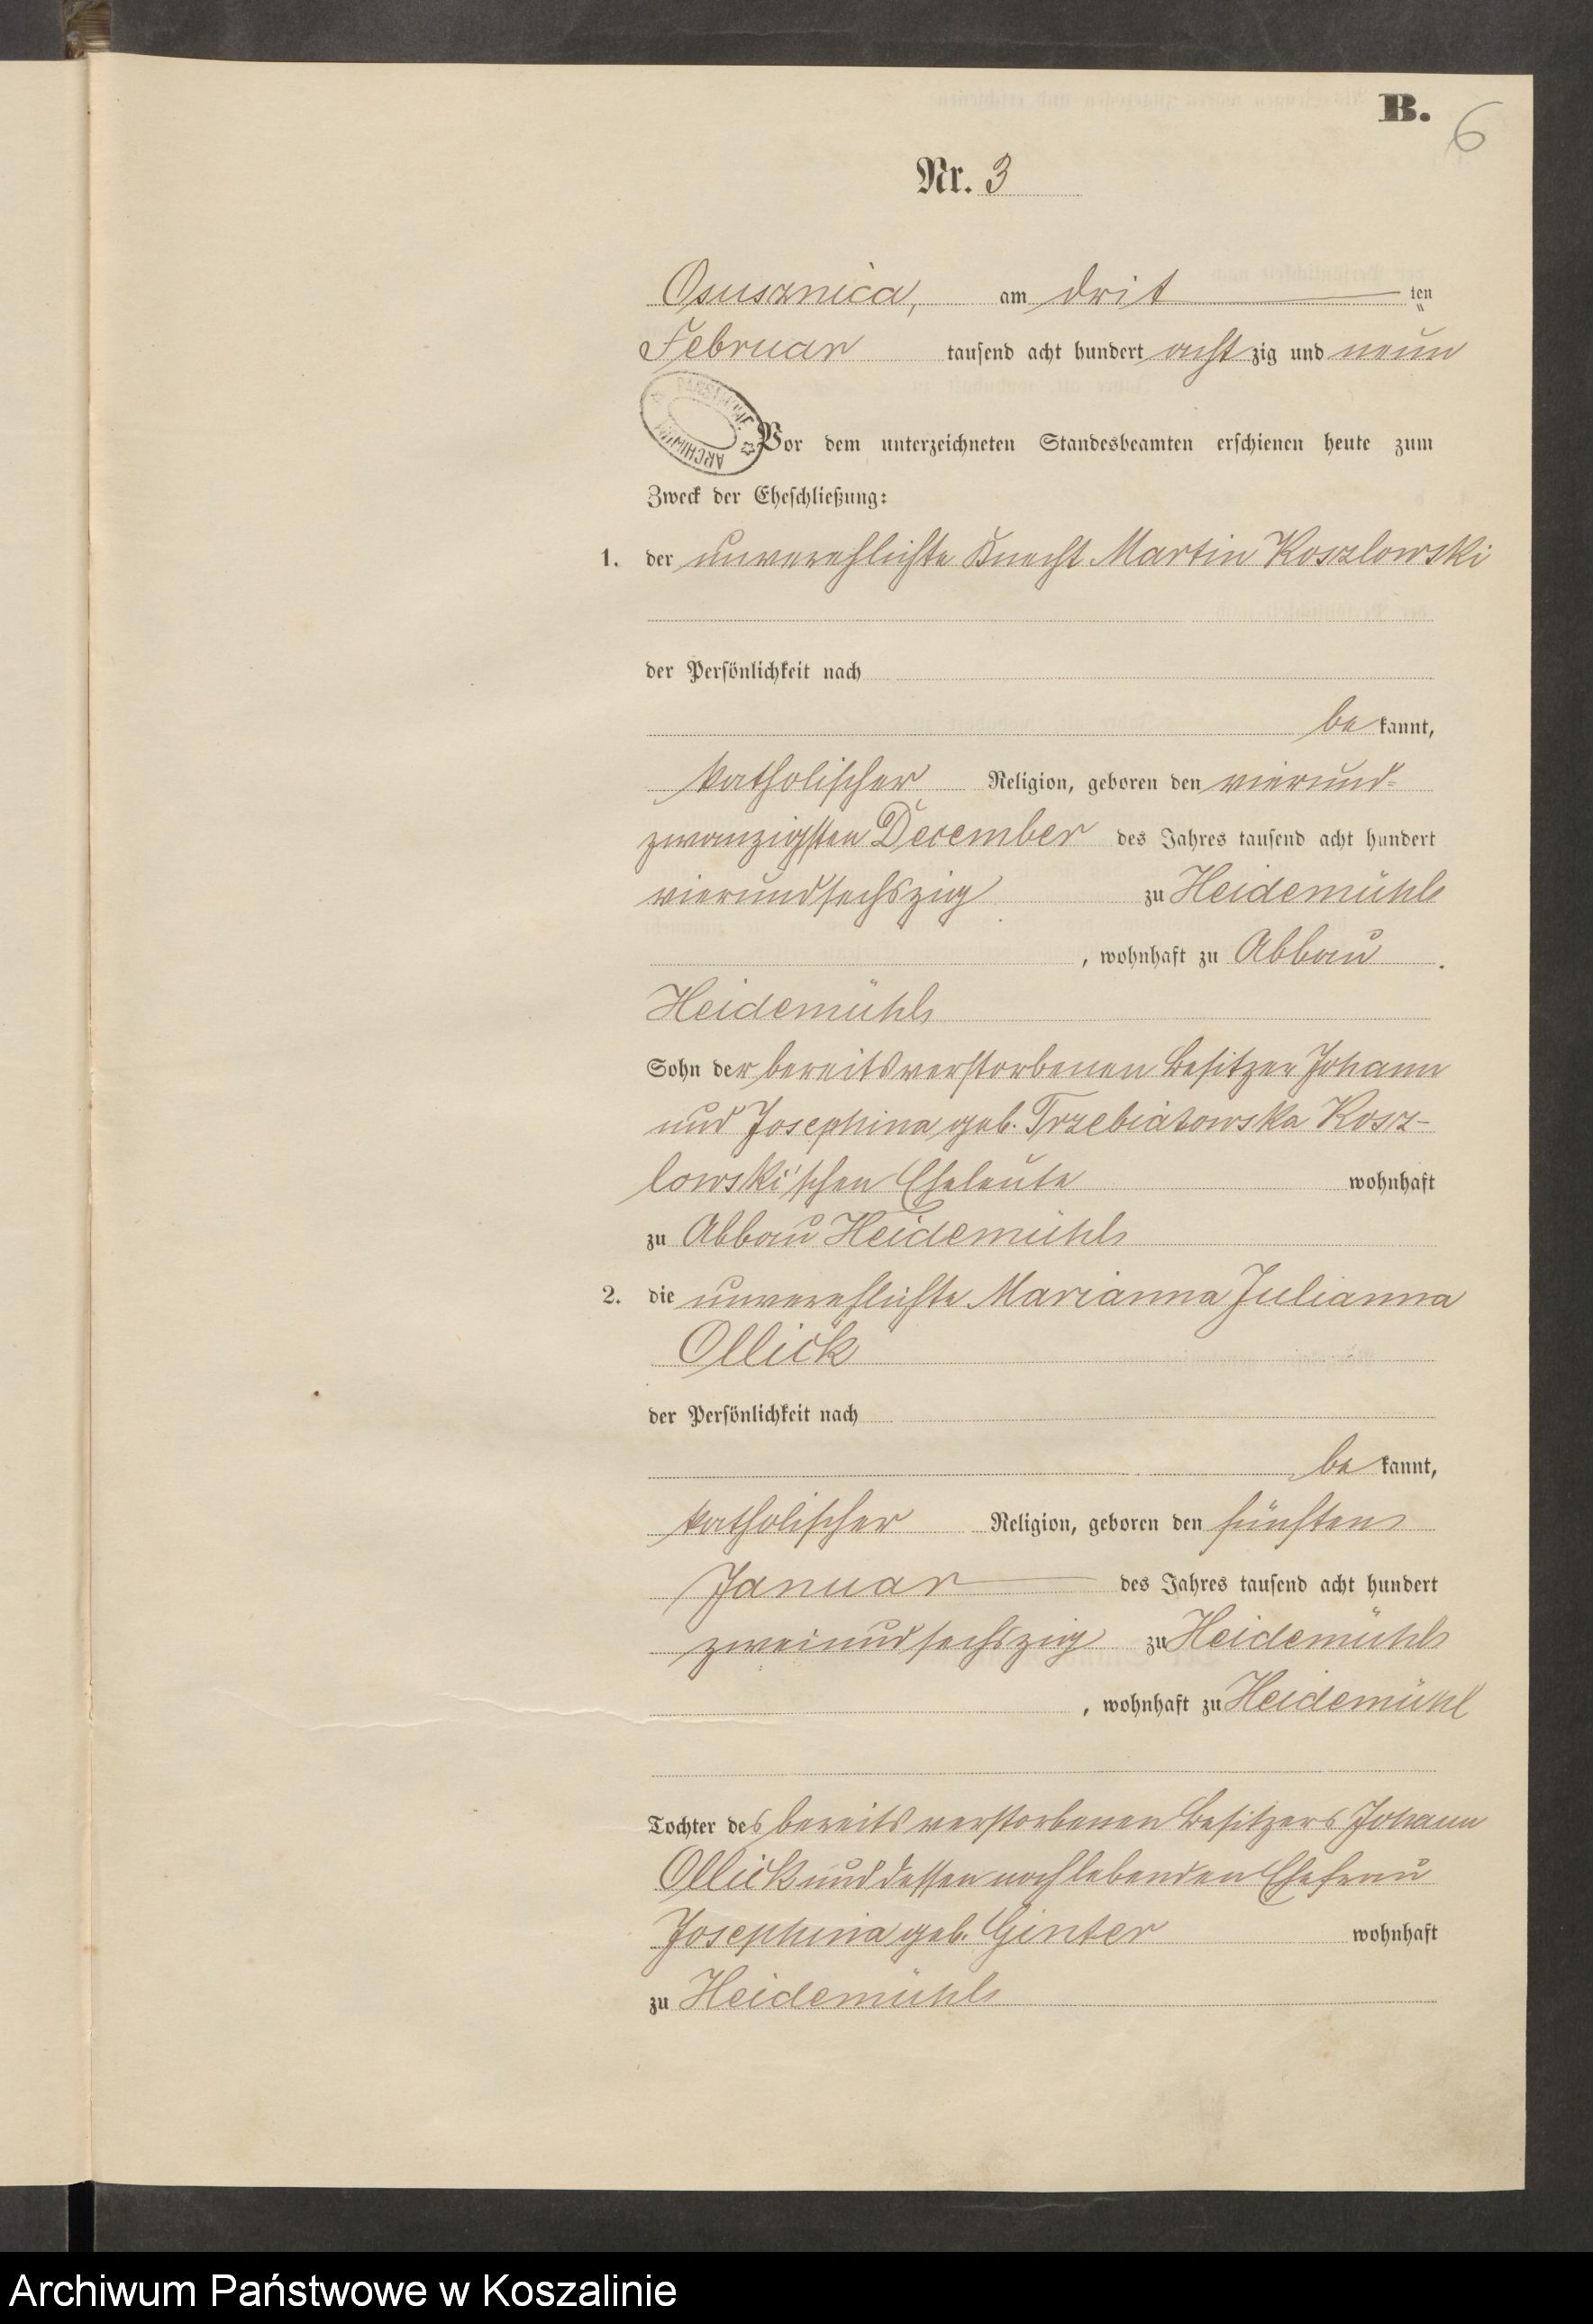 B.
6
Nr. 3
Osusznica, am drit ten
Februar tausend acht hundert acht zig und neun
ARCHIWUM PAŃSTWOWE
Vor dem unterzeichneten Standesbeamten erschienen heute zum
Zweck der Eheschließung:
1. der unverehlichte Knecht Martin Koszlowski
der Persönlichkeit nach
be kannt,
katholischer Religion, geboren den vierund-
zwanzigsten December des Jahres tausend acht hundert
vierundsechszig zu Heidemühle
, wohnhaft zu Abbau
Heidemühle
Sohn der bereits verstorbenen Besitzer Johann
und Josephina geb. Trzebiatowska Kosz-
lowski'schen Eheleute wohnhaft
zu Abbau Heidemühle
2. die unverehlichte Marianna Julianna
Ollick
der Persönlichkeit nach
be kannt,
katholischer Religion, geboren den fünften
Januar des Jahres tausend acht hundert
zweiundsechszig zu Heidemühle
, wohnhaft zu Heidemühl
Tochter des bereits verstorbenen Besitzers Johann
Ollick und dessen noch lebenden Ehefrau
Josephina geb. Ginter wohnhaft
zu Heidemühle
Archiwum Państwowe w Koszalinie